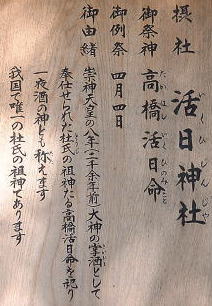 摂社 活日神社
いくひじんじゃ
御祭神 高橋活日命
たかはしいくひのみこと
御例祭 四月四日
御由緒
崇神天皇の八年(二千余年前)大神の掌酒として
奉仕せられた杜氏の祖神たる高橋活日命を祀り
とうじ
一夜酒の神とも称えます
我国で唯一の杜氏の祖神であります